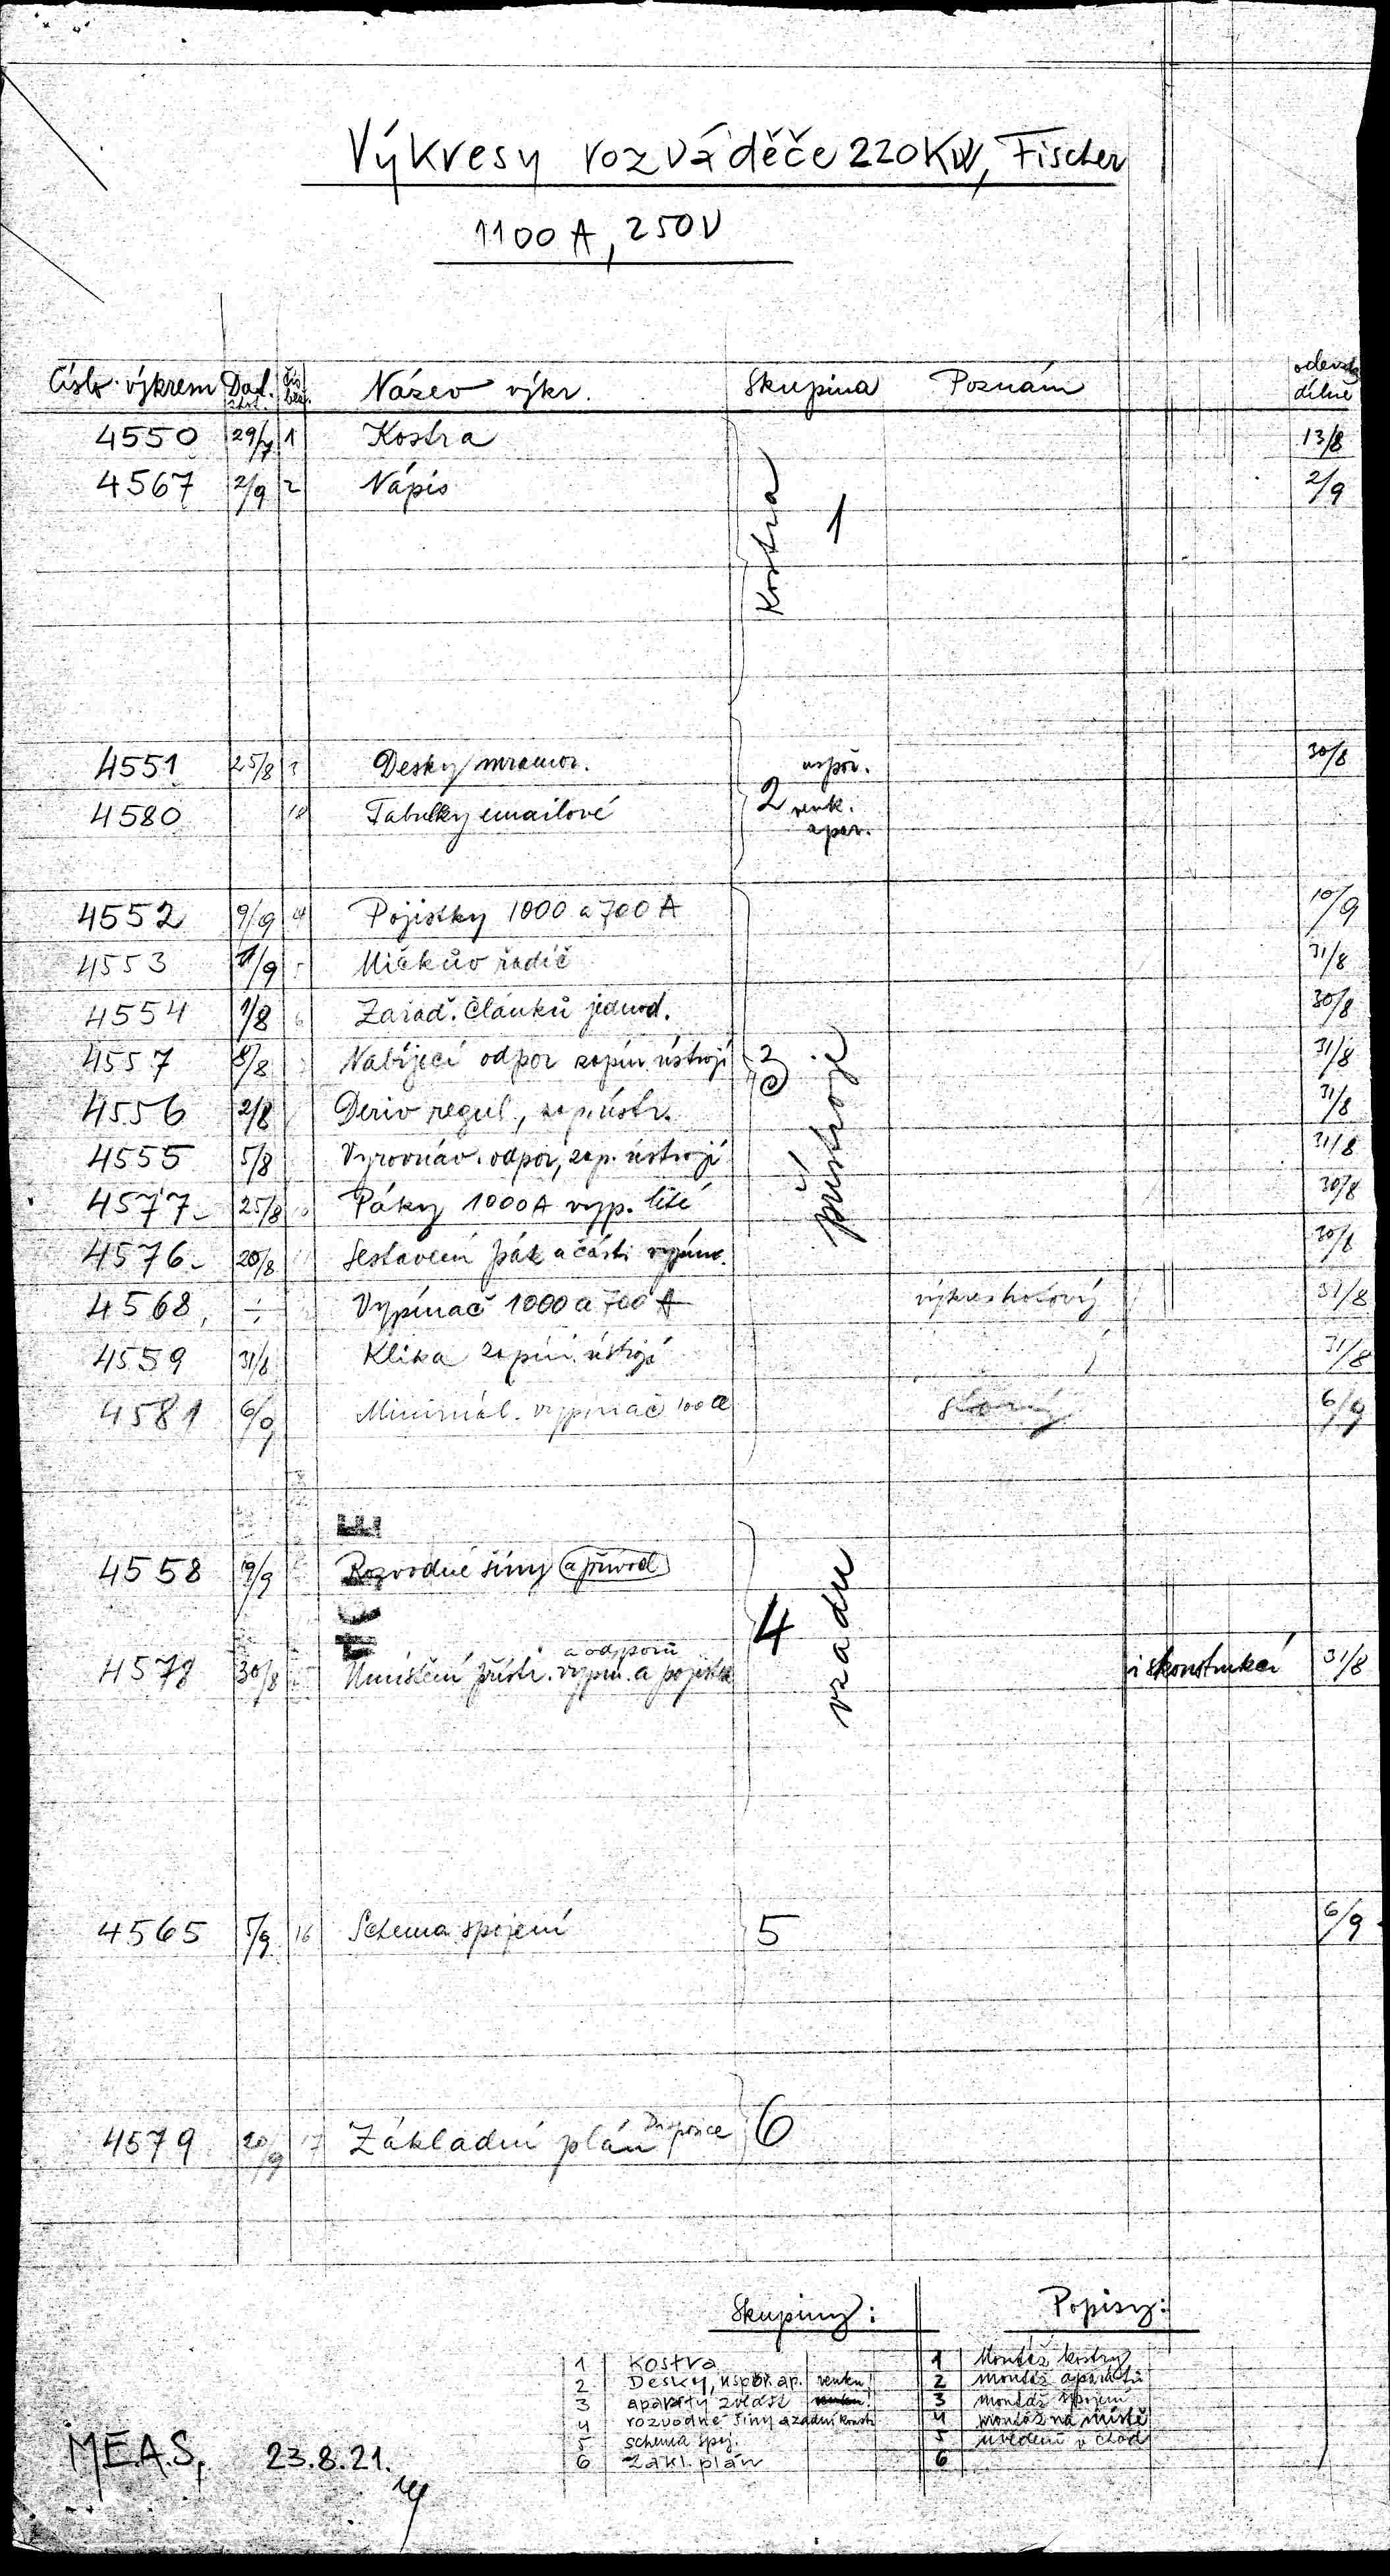 Výkresy rozváděče 220KW, Fischer
1100 A, 250V
Číslo výkresu Dat. Název výkr. Skupina Poznám odevzd. dílně
4550 29/7 1 Kostra 13/8
4567 2/9 2 Nápis 2/9
Kostra 1
4551 25/8 3 Desky mramor. uspoř. 30/8
4580 18 Tabulky emailové 2 venk.
apar.
4552 9/9 4 Pojistky 1000 a 700 A 10/9
4553 /9 5 Mičkův řadič 31/8
4554 1/8 6 Zařad. článků jednod. 30/8
4557 8/8 Nabíjecí odpor zapín. ústrojí 3 31/8
4556 2/8 Deriv regul., zap. ústr. přístroje 31/8
4555 5/8 Vyrovnáv. odpor, zap. ústrojí 31/8
4577 25/8 Páky 1000A vyp. lité 30/8
4576 20/8 Sestavení pák a části vypín. 30/8
4568 Vypínač 1000 a 700 A výkres hotový 31/8
4559 31/8 Klika zapín. ústrojí 31/8
4581 6/9 Minimál. vypínač 100 A 6/9
4558 19/9 Rozvodné šíny a přívod
4 vzadu
a odporů
4578 30/8 Umístění přístr. vypín. a pojistek i s konstrukcí 31/8
4565 5/9 16 Schema spojení 5 6/9
4579 20/9 17 Základní plán Disposice 6
Skupiny: Popisy:
1 Kostra 1 Montáž kostry
2 Desky, uspoř. ap. venku! 2 montáž aparátů
3 aparáty zvlášť 3 montáž spojení
4 rozvodné šíny a zadní konstr 4 montáž na místě
5 schema spoj. 5 uvedení v chod
6 zákl. plán 6
MEAS, 23.8.21.